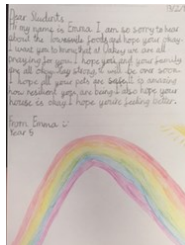 Dear Students
Hi my name is Emma. I am so sorry to hear
about the floods and hope your okay.
I want you to know that at we are all
praying for you. I hope you and your family
are all okay. Stay strong it will be over soon.
I hope all your pets are safe. It is amazing
how resilient you are being. I also hope your
house is okay. I hope you're feeling better.
From Emma :)
Year 5